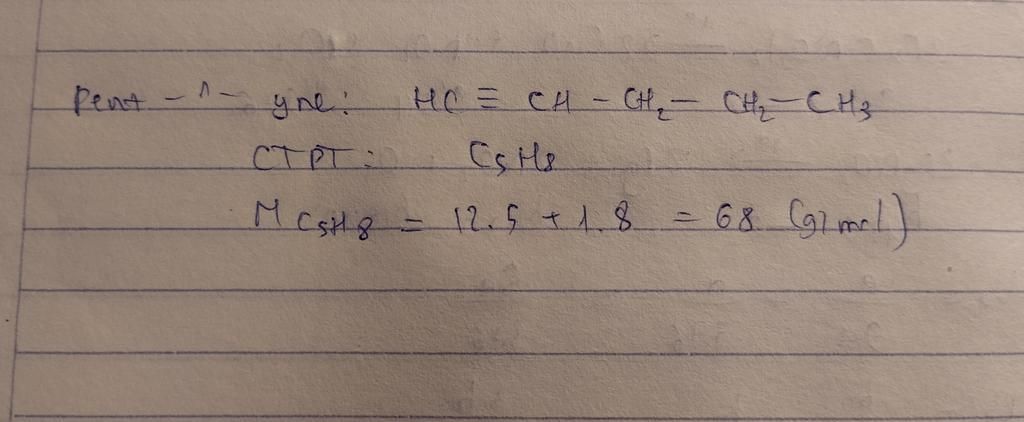 Pent - 1 - yne: HC ≡ CH - CH₂ - CH₂ - CH₃
CTPT: C₅H₈
M C₅H₈ = 12.5 + 1.8 = 68 (g/mol)